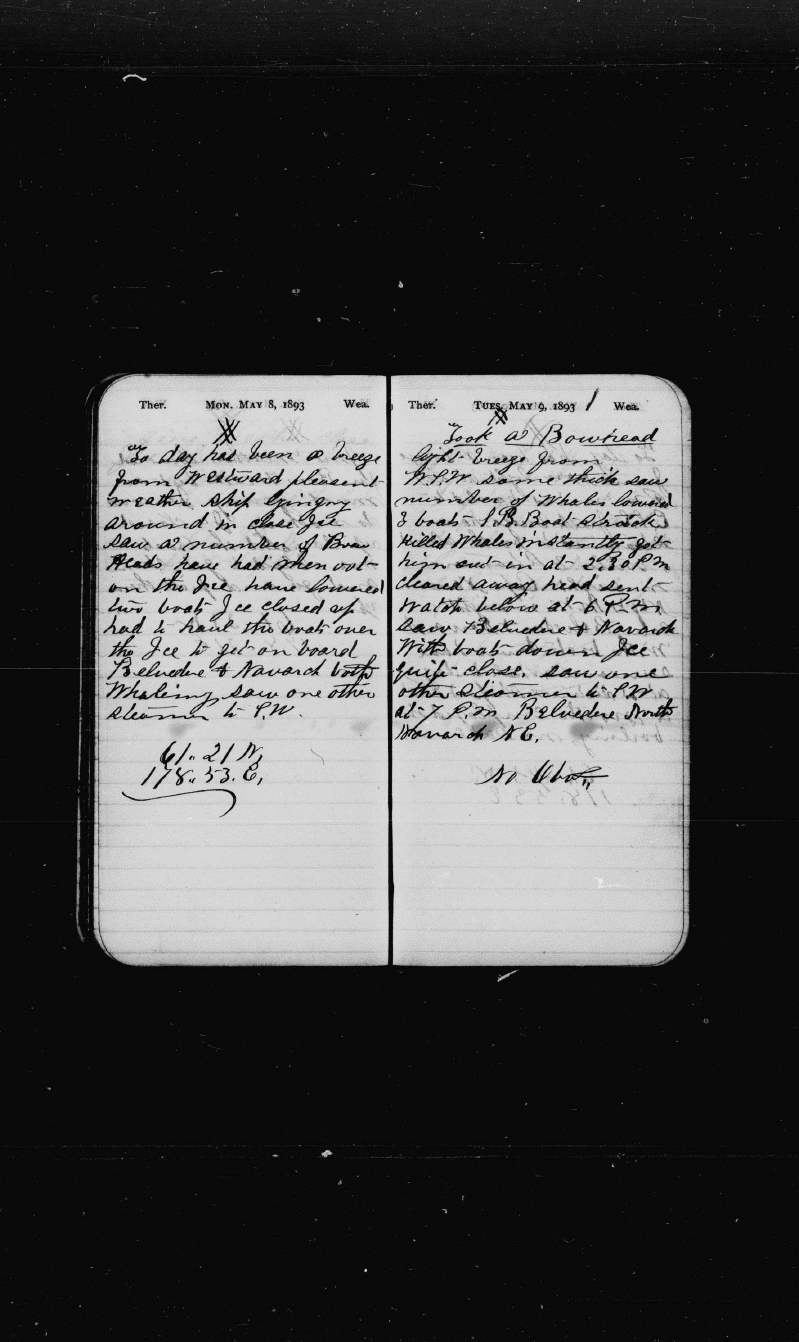 Ther. MON. MAY 8, 1893 Wea.
To day has been a breeze
from Westward pleasent
weather Ship Gingny
around in close Ice
saw a number of Bow
Heads have had men out
on the Ice have lowered
two boats Ice closed up
had to haul the boats over
the Ice to get on board
Belvedere & Navarch both
Whaling saw one other
steamer to S.W.
61.. 21 N,
178.. 53. E,
Ther. TUES. MAY 9, 1893 1 Wea.
Took a Bowhead
light breeze from
W.S.W some thick saw
number of Whales lowered
3 boats S.B. Boat struck
Killed Whales instantly got
him cut in at 2.30 P.M
cleared away head sent
Watch below at 6 P.M,
saw Belvedere & Navarch
With boats down Ice
quite close. saw one
other steamer to S.W
at 7 P.M Belvedere North
Navarch N E,
No Obs..